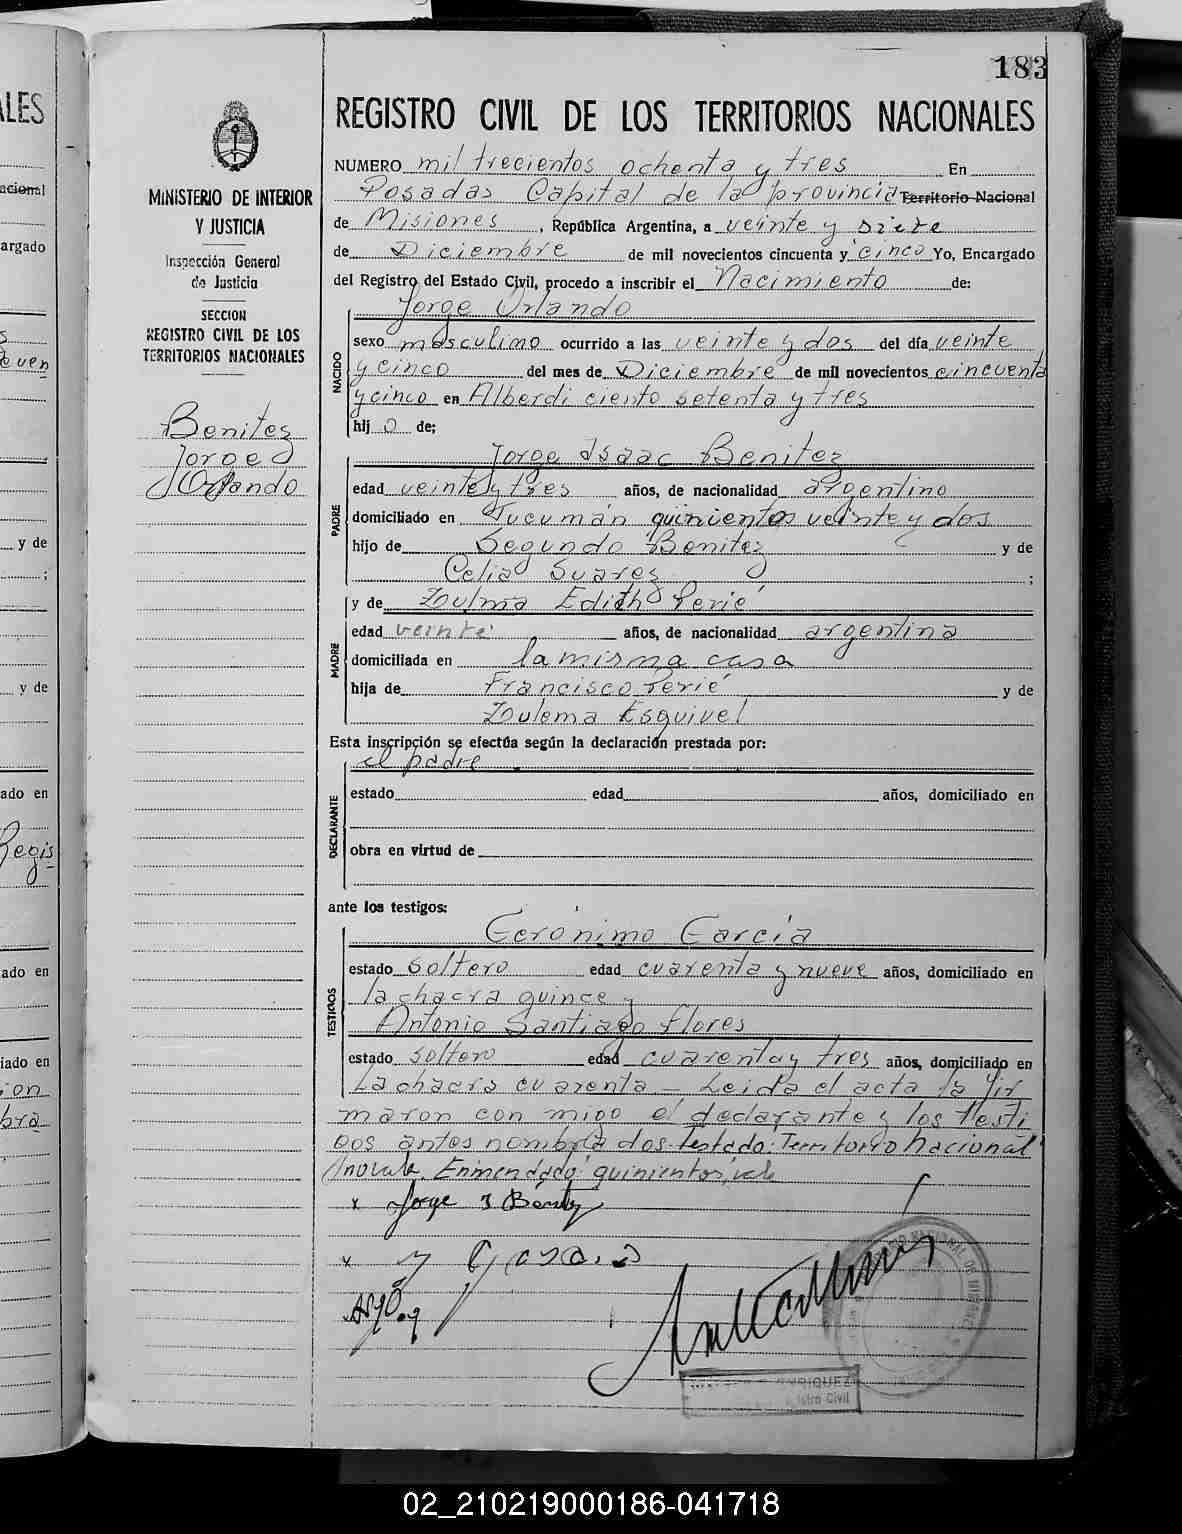 183
REGISTRO CIVIL DE LOS TERRITORIOS NACIONALES
MINISTERIO DE INTERIOR
Y JUSTICIA
Inspección General
de Justicia
SECCION
REGISTRO CIVIL DE LOS
TERRITORIOS NACIONALES
Benitez
Jorge
Orlando
NUMERO mil trecientos ochenta y tres En
Posadas Capital de la provincia Territorio Nacional
de Misiones, República Argentina, a veinte y siete
de Diciembre de mil novecientos cincuenta y cinco Yo, Encargado
del Registro del Estado Civil, procedo a inscribir el Nacimiento de:
Jorge Orlando
NACIDO
sexo masculino ocurrido a las veinte y dos del día veinte
y cinco del mes de Diciembre de mil novecientos cincuenta
y cinco en Alberdi ciento setenta y tres
hij o de;
Jorge Isaac Benitez
PADRE
edad veinte y tres años, de nacionalidad argentino
domiciliado en Tucumán quinientos veinte y dos
hijo de Segundo Benitez y de
Celia Suarez ;
y de Zulma Edith Perié
MADRE
edad veinte años, de nacionalidad argentina
domiciliada en la misma casa
hija de Francisco Perié y de
Zulema Esquivel
Esta inscripción se efectúa según la declaración prestada por:
el padre
DECLARANTE
estado edad años, domiciliado en
obra en virtud de
ante los testigos:
Gerónimo García
TESTIGOS
estado soltero edad cuarenta y nueve años, domiciliado en
la chacra quince y
Antonio Santiago Flores
estado soltero edad cuarenta y tres años, domiciliado en
La chacra cuarenta - Leida el acta la fir
maron con migo el declarante y los testi
gos antes nombra dos. Testado: Territorio Nacional
no vale. Enmendado: quinientos, vale
x Jorge I Benitez
x
Registro Civil
ALES
acional
argado
y de
;
y de
ado en
Regis
ado en
iado en
ion
bra
02_210219000186-041718